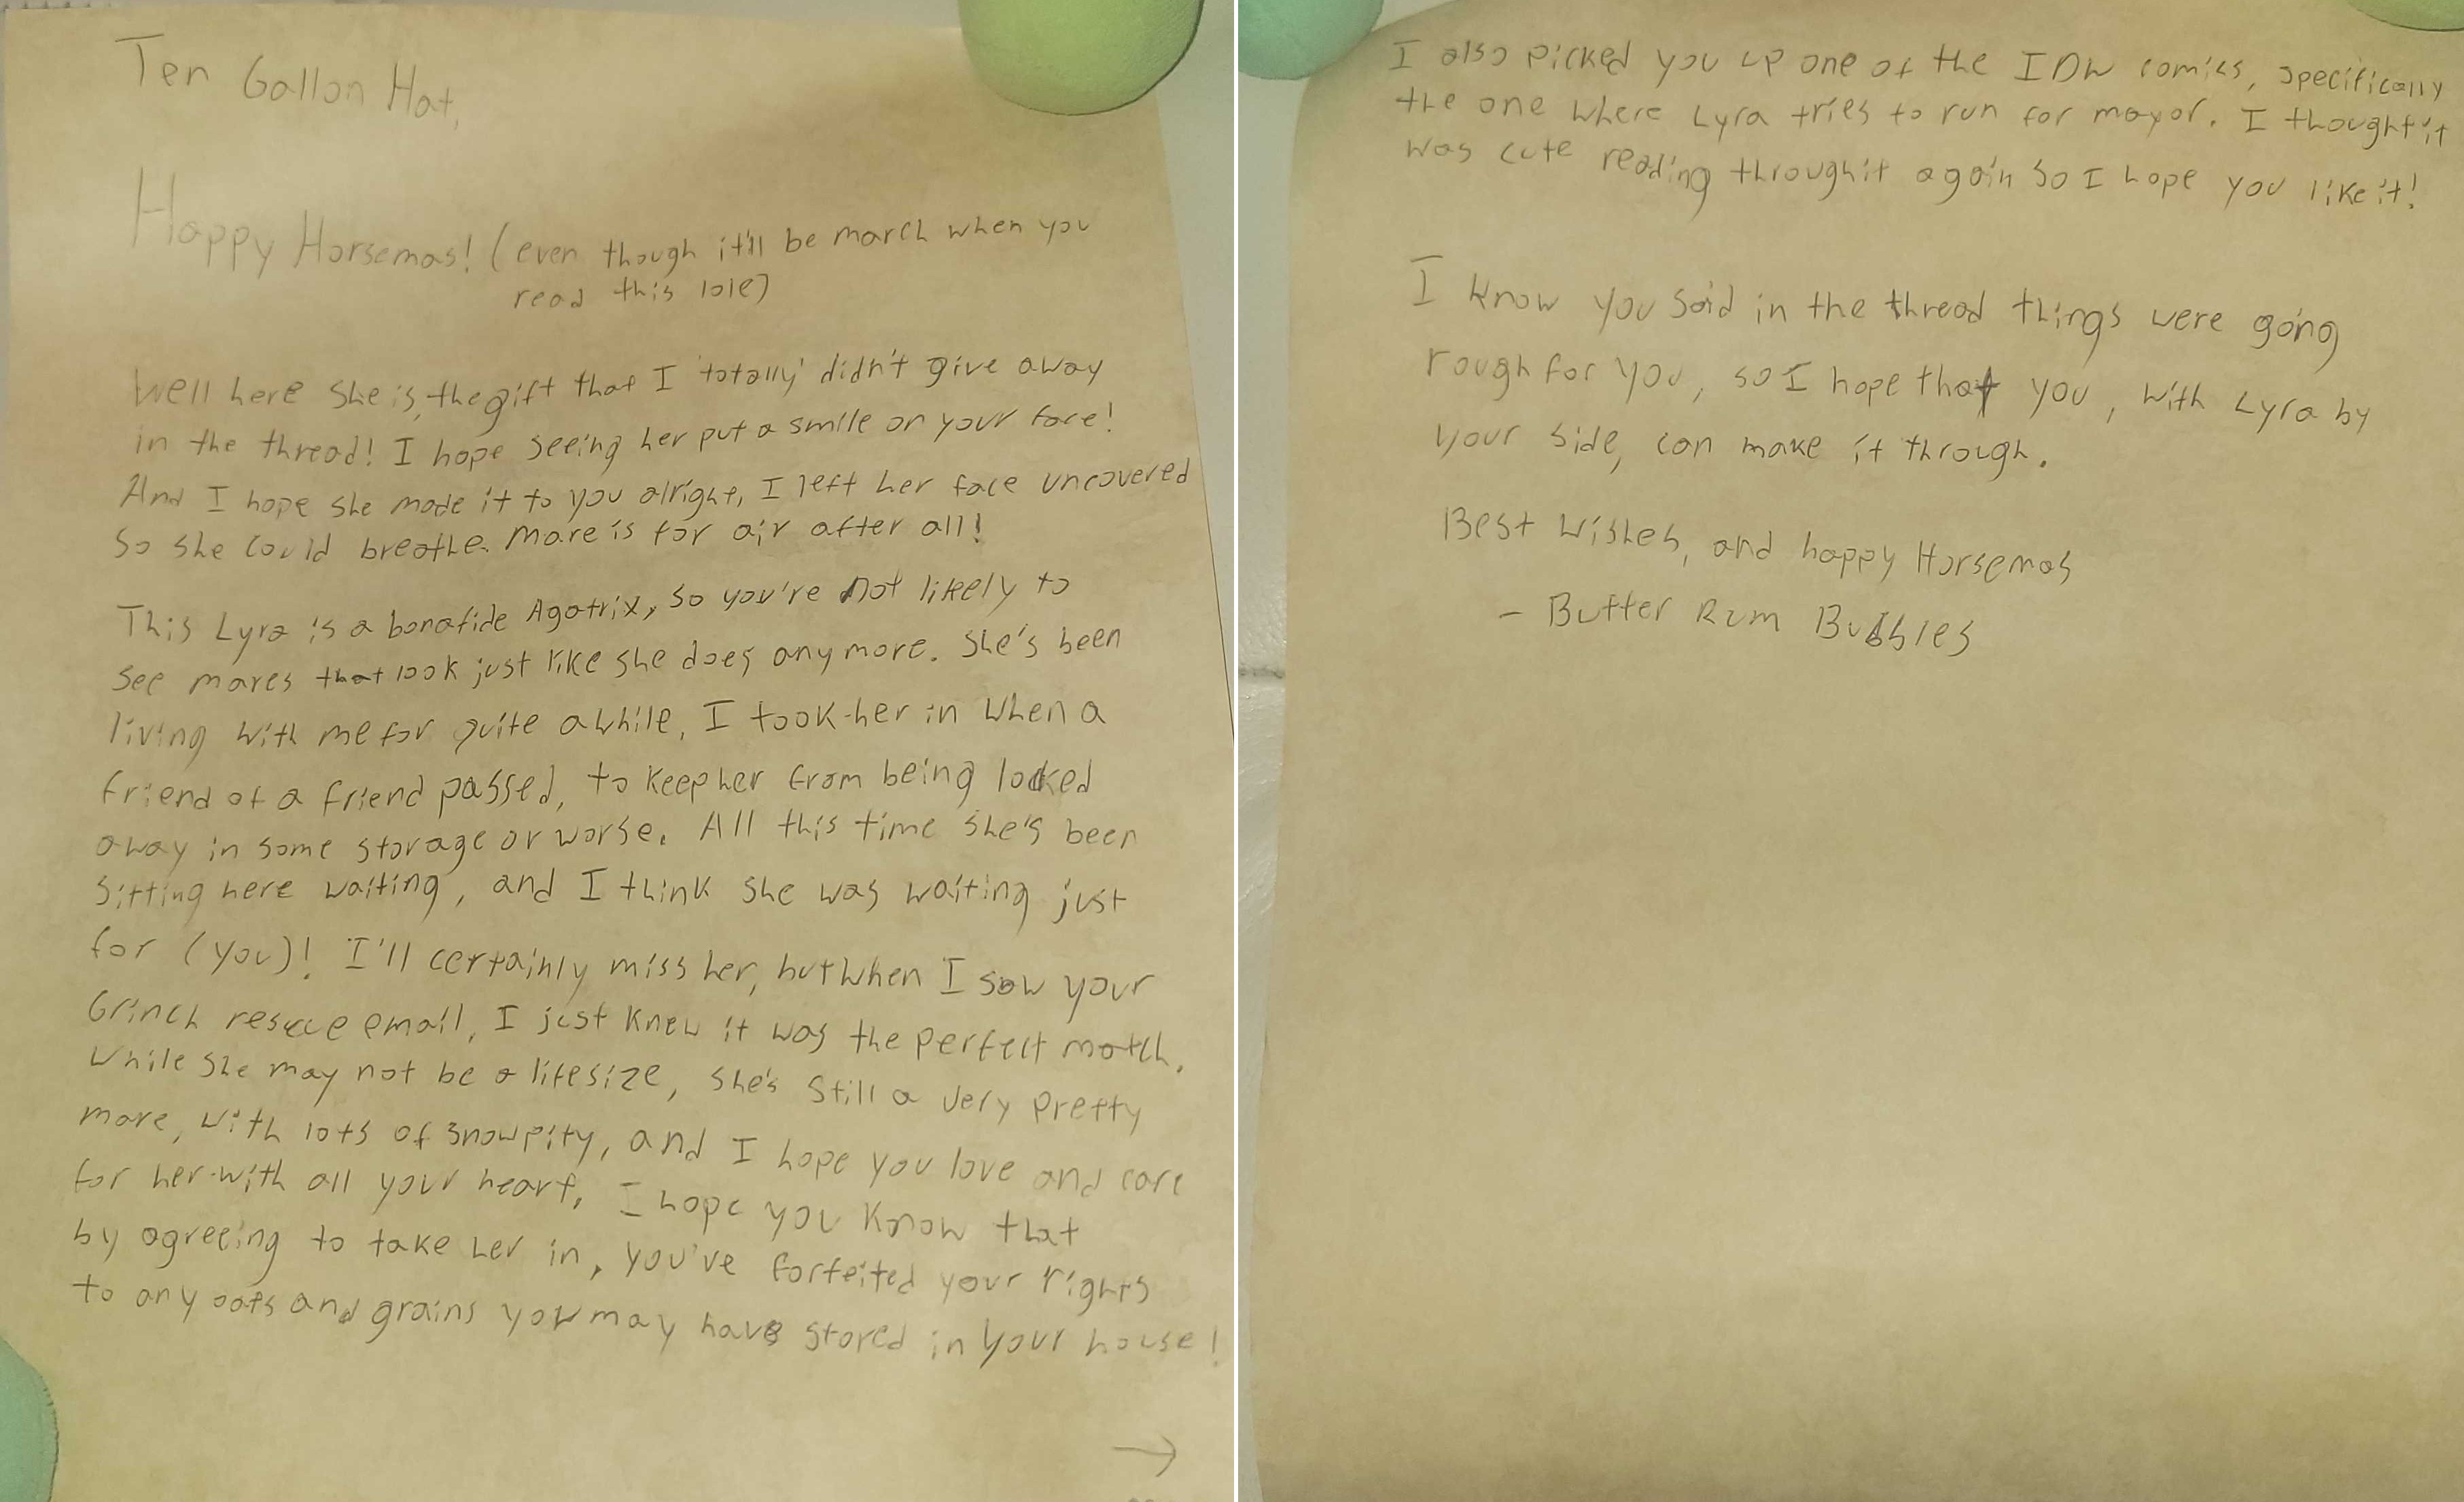 Ten Gallon Hat,
Happy Horsemas! (even though it'll be march when you
read this lole)
Well here she is, the gift that I 'totally' didn't give away
in the thread! I hope seeing her put a smile on your face!
And I hope she made it to you alright, I left her face uncovered
so she could breathe. Mare is for air after all!
This Lyra is a bonafide Agatrix, so you're not likely to
see mares that look just like she does anymore. She's been
living with me for quite awhile, I took her in when a
friend of a friend passed, to keep her from being locked
away in some storage or worse. All this time she's been
sitting here waiting, and I think she was waiting just
for (you)! I'll certainly miss her, but when I saw your
Grinch rescue email, I just knew it was the perfect match.
While she may not be a lifesize, she's still a very pretty
mare, with lots of snowpity, and I hope you love and care
for her with all your heart. I hope you know that
by agreeing to take her in, you've forfeited your rights
to any oats and grains you may have stored in your house!
→
I also picked you up one of the IDW comics, specifically
the one where Lyra tries to run for mayor. I thought it
was cute reading through it again so I hope you like it!
I know you said in the thread things were going
rough for you, so I hope that you, with Lyra by
your side, can make it through.
Best Wishes, and happy Horsemas
- Butter Rum Bubbles